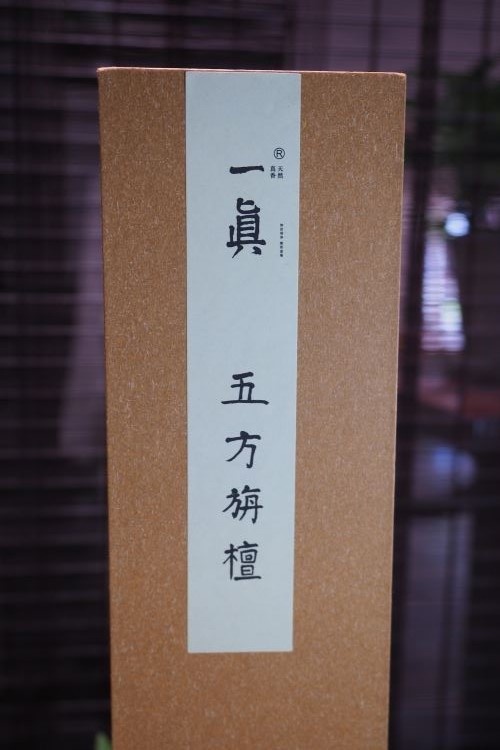 一眞
®
天然
真香
五方旃檀